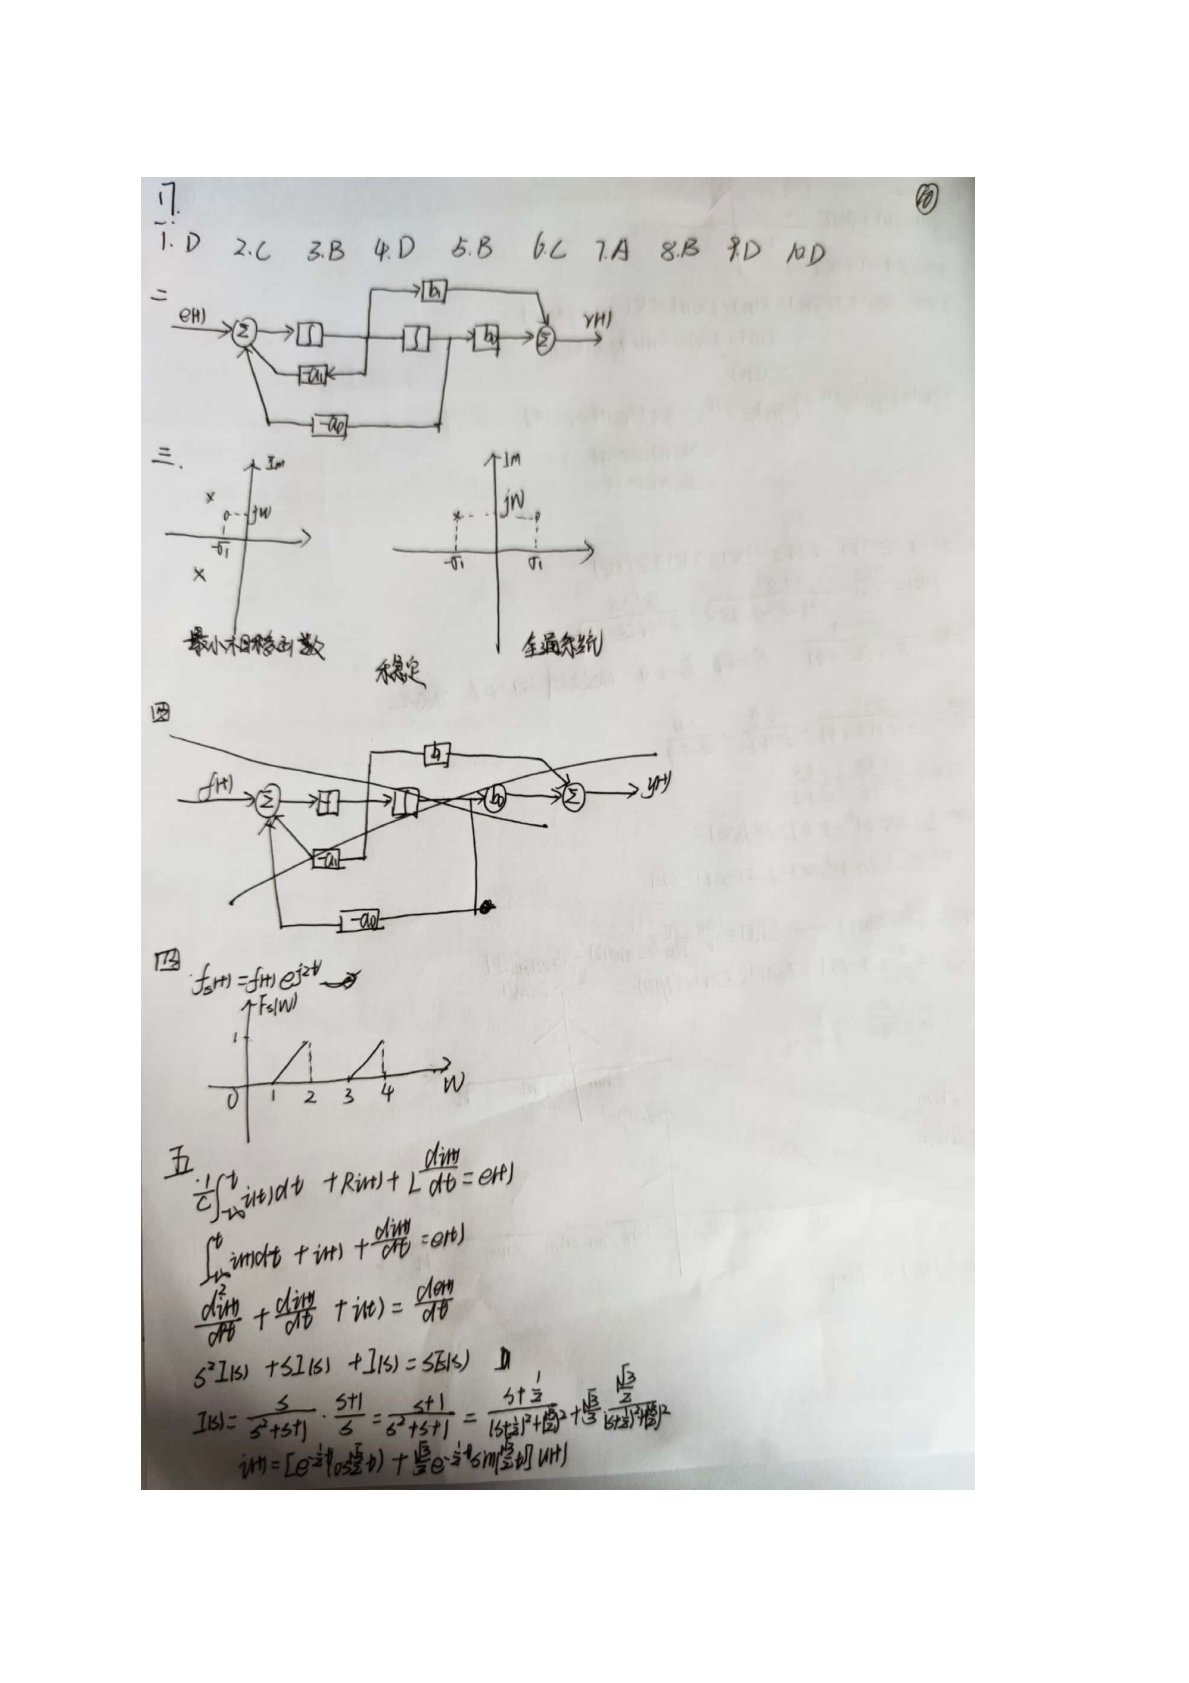 17.
⑩
一:
1. D 2.C 3.B 4.D 5.B 6.C 7.A 8.B 9.D 10.D
二
b₁
e(t) Σ ∫ ∫ b₀ Σ r(t)
-a₁
-a₀
三.
Im Im
jW jW
-σ₁ -σ₁ σ₁
最小相移函数 全通系统
稳定
四
b₁
f(t) Σ ∫ ∫ b₀ Σ y(t)
-a₁
-a₀
四
fs(t)=f(t)e^{j2t}
Fs(W)
1
0 1 2 3 4 W
五
\frac{1}{C}∫_{-∞}^{t} i(t)dt + Ri(t) + L\frac{di(t)}{dt} = e(t)
∫_{-∞}^{t} i(t)dt + i(t) + \frac{di(t)}{dt} = e(t)
\frac{d²i(t)}{dt} + \frac{di(t)}{dt} + i(t) = \frac{de(t)}{dt}
s²I(s) + sI(s) + I(s) = sE(s)
I(s) = \frac{s}{s²+s+1} · \frac{s+1}{s} = \frac{s+1}{s²+s+1} = \frac{s+\frac{1}{2}}{(s+\frac{1}{2})²+(\frac{√3}{2})²} + \frac{√3}{3} \frac{\frac{√3}{2}}{(s+\frac{1}{2})²+(\frac{√3}{2})²}
i(t) = [e^{-\frac{1}{2}t}cos(\frac{√3}{2}t) + \frac{√3}{3}e^{-\frac{1}{2}t}sin(\frac{√3}{2}t)]u(t)